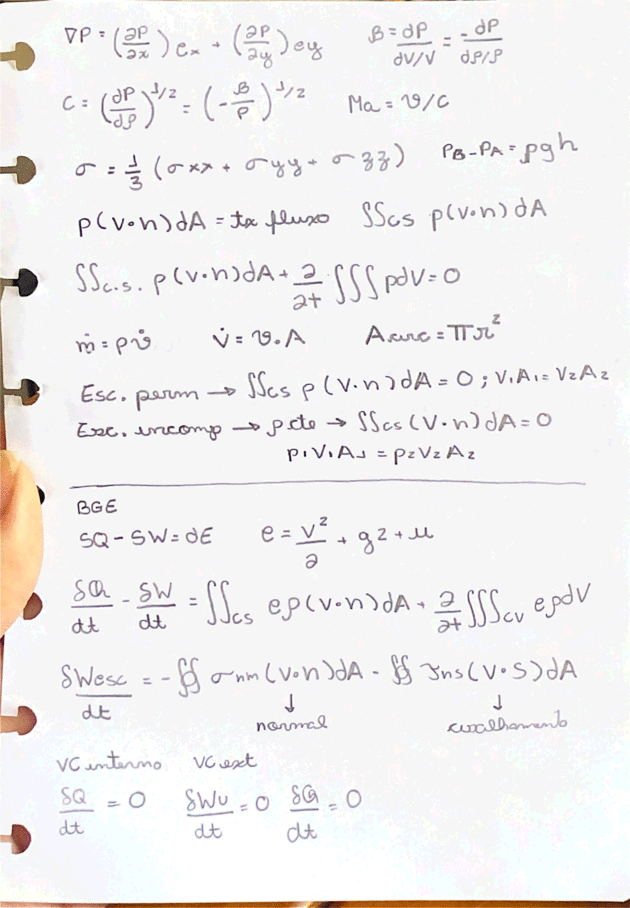 ∇P = (∂P/∂x) ex + (∂P/∂y) ey   β = dP/(dV/V) = -dP/(dρ/ρ)
C = (∂P/∂ρ)^1/2 = (-β/ρ)^1/2   Ma = v/c
σ = 1/3 (σxx + σyy + σzz)   PB - PA = ρgh
ρ(v·n)dA = tx fluxo   ∬cs ρ(v·n)dA
∬c.s. ρ(v·n)dA + ∂/∂t ∭ρdV = 0
ṁ = ρv̇   V̇ = v.A   Acirc = πr²
Esc. perm → ∬cs ρ(v·n)dA = 0 ; V1A1 = V2A2
Esc. incomp → ρ cte → ∬cs (v·n)dA = 0
ρ1V1A1 = ρ2V2A2
BGE
δQ - δW = dE   e = v²/2 + gz + u
δQ/dt - δW/dt = ∬cs eρ(v·n)dA + ∂/∂t ∭cv eρdV
δWesc/dt = -∯ σnm(v·n)dA - ∯ τns(v·s)dA
↓ normal   ↓ cisalhamento
VC interno   VC ext
δQ/dt = 0   δWu/dt = 0   δQ/dt = 0